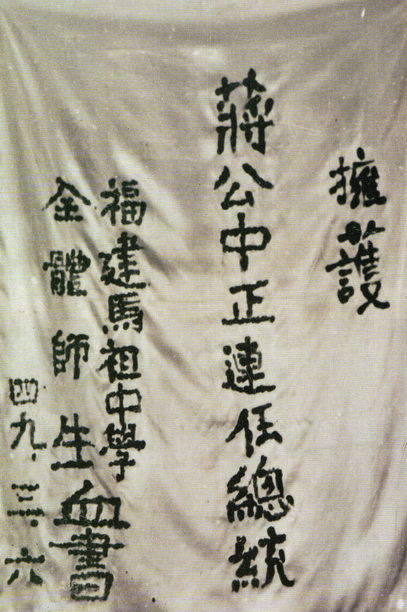 擁護
蔣公中正連任總統
福建馬祖中學
全體師生血書
四九.三.六